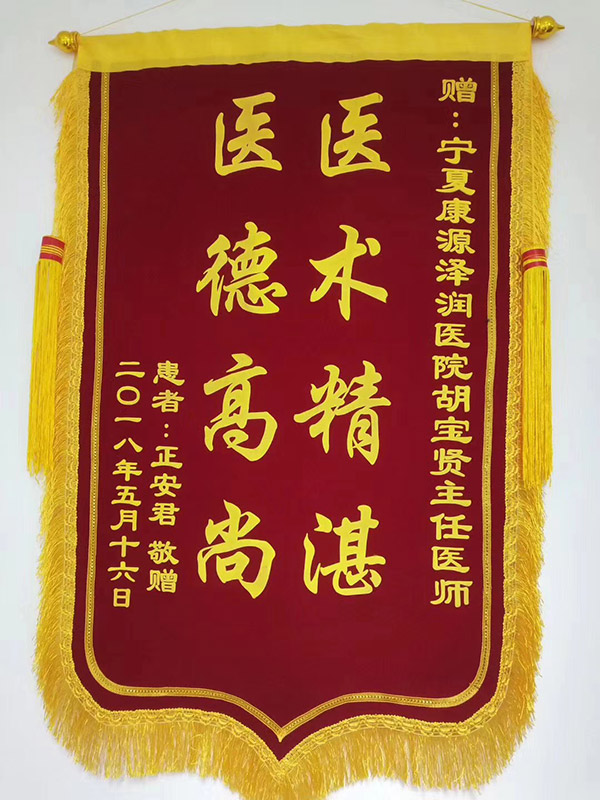 赠：宁夏康源泽润医院胡宝贤主任医师
医术精湛
医德高尚
患者：正安君 敬赠
二〇一八年五月十六日